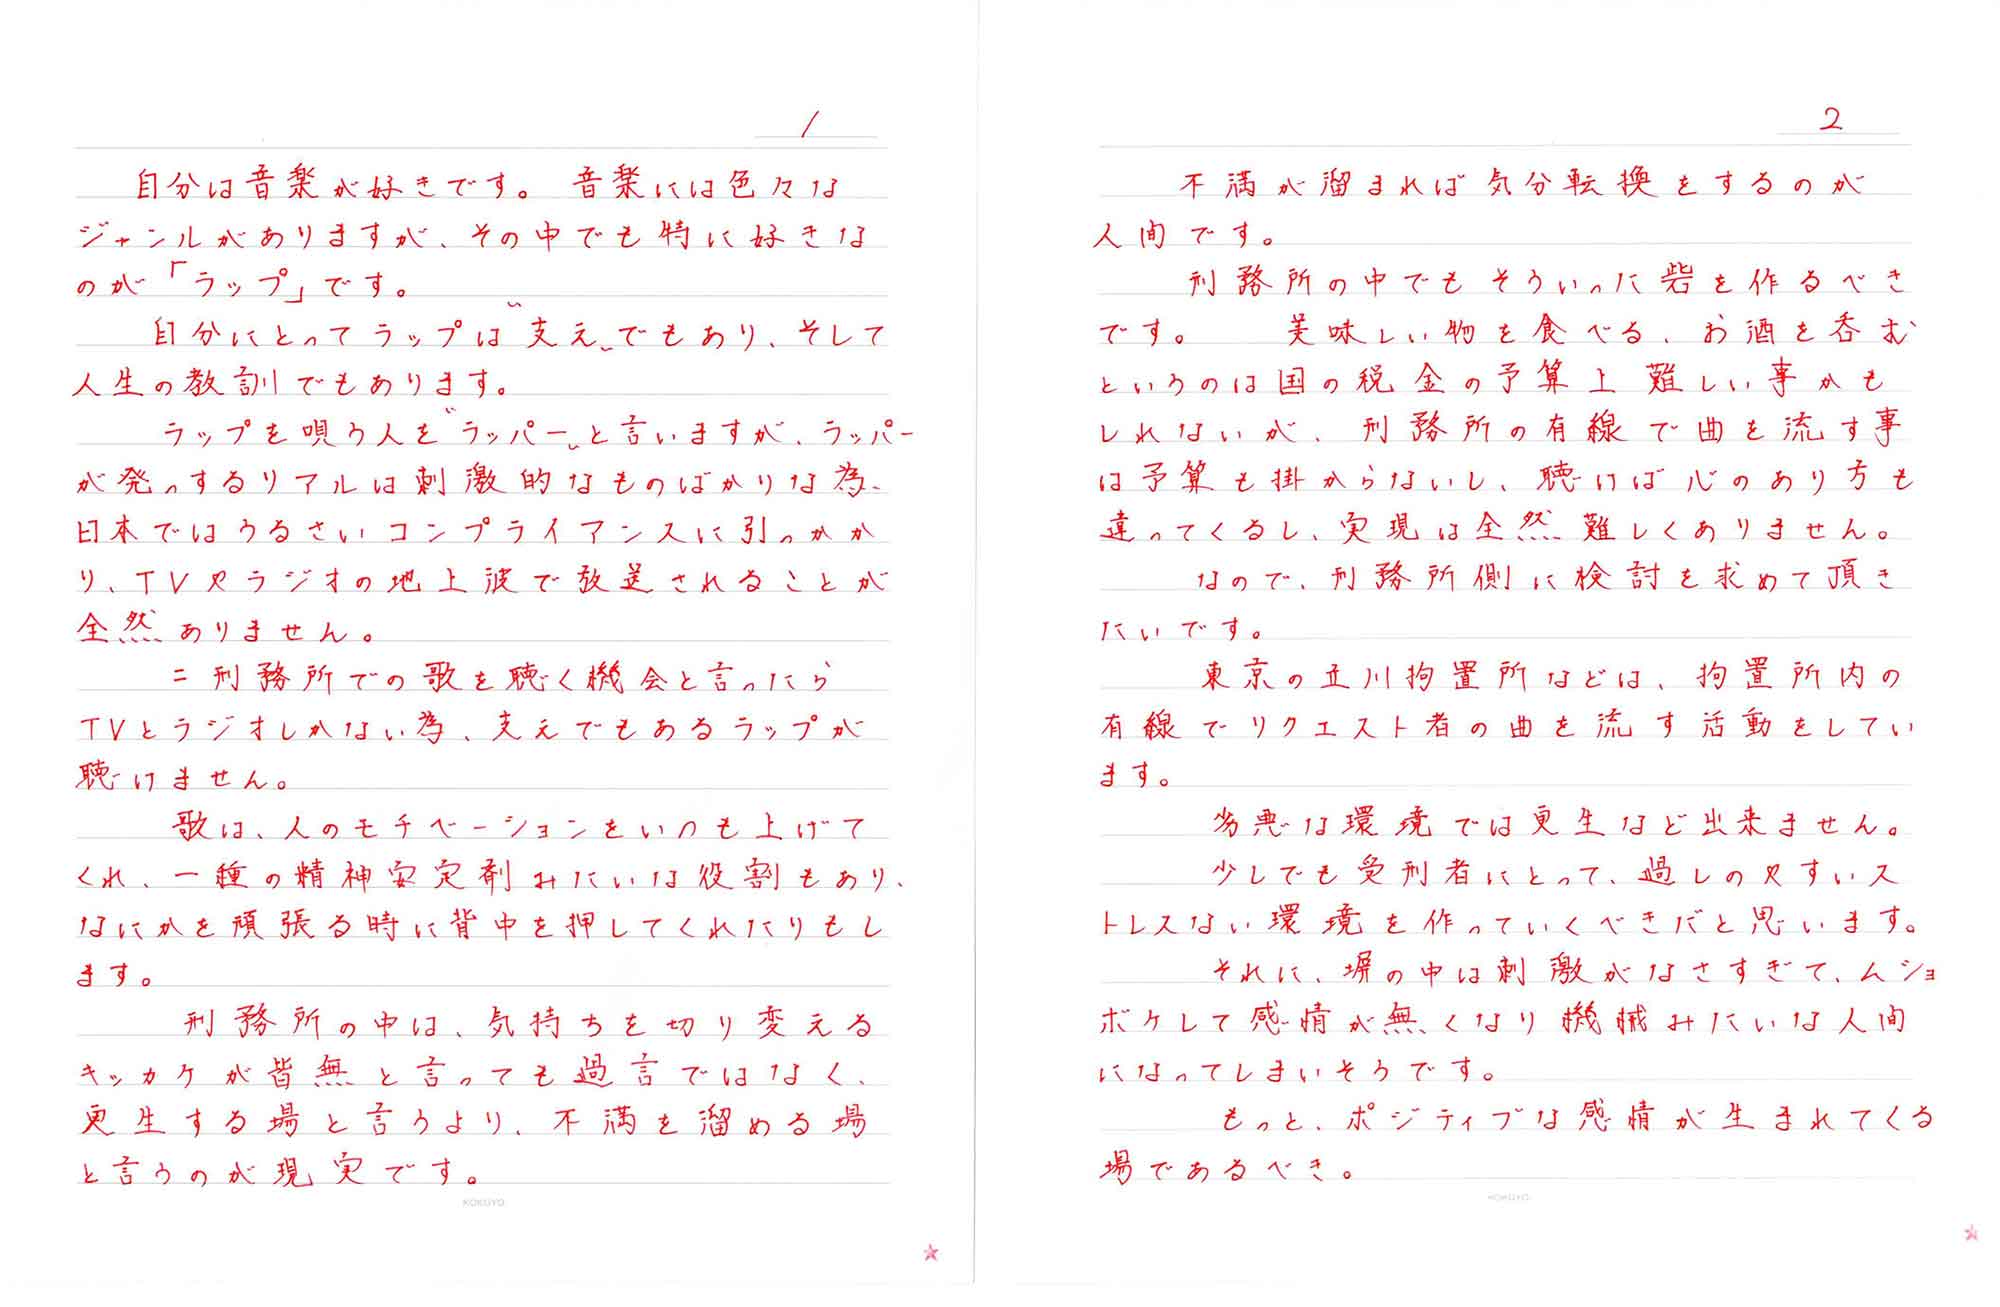 1
自分は音楽が好きです。音楽には色々な
ジャンルがありますが、その中でも特に好きな
のが「ラップ」です。
自分にとってラップは〝支え〟でもあり、そして
人生の教訓でもあります。
ラップを唄う人を〝ラッパー〟と言いますが、ラッパー
が発っするリアルは刺激的なものばかりな為、
日本ではうるさいコンプライアンスに引っかか
り、TVやラジオの地上波で放送されることが
全然ありません。
ニ刑務所での歌を聴く機会と言ったら
TVとラジオしかない為、支えでもあるラップが
聴けません。
歌は、人のモチベーションをいつも上げて
くれ、一種の精神安定剤みたいな役割もあり、
なにかを頑張る時に背中を押してくれたりもし
ます。
刑務所の中は、気持ちを切り変える
キッカケが皆無と言っても過言ではなく、
更生する場と言うより、不満を溜める場
と言うのが現実です。
KOKUYO
2
不満が溜まれば気分転換をするのが
人間です。
刑務所の中でもそういった砦を作るべき
です。 美味しい物を食べる、お酒を呑む
というのは国の税金の予算上難しい事かも
しれないが、刑務所の有線で曲を流す事
は予算も掛からないし、聴けば心のあり方も
違ってくるし、実現は全然難しくありません。
なので、刑務所側に検討を求めて頂き
たいです。
東京の立川拘置所などは、拘置所内の
有線でリクエスト者の曲を流す活動をしてい
ます。
劣悪な環境では更生など出来ません。
少しでも受刑者にとって、過しのやすいス
トレスない環境を作っていくべきだと思います。
それに、塀の中は刺激がなさすぎて、ムショ
ボケして感情が無くなり機械みたいな人間
になってしまいそうです。
もっと、ポジティブな感情が生まれてくる
場であるべき。
KOKUYO